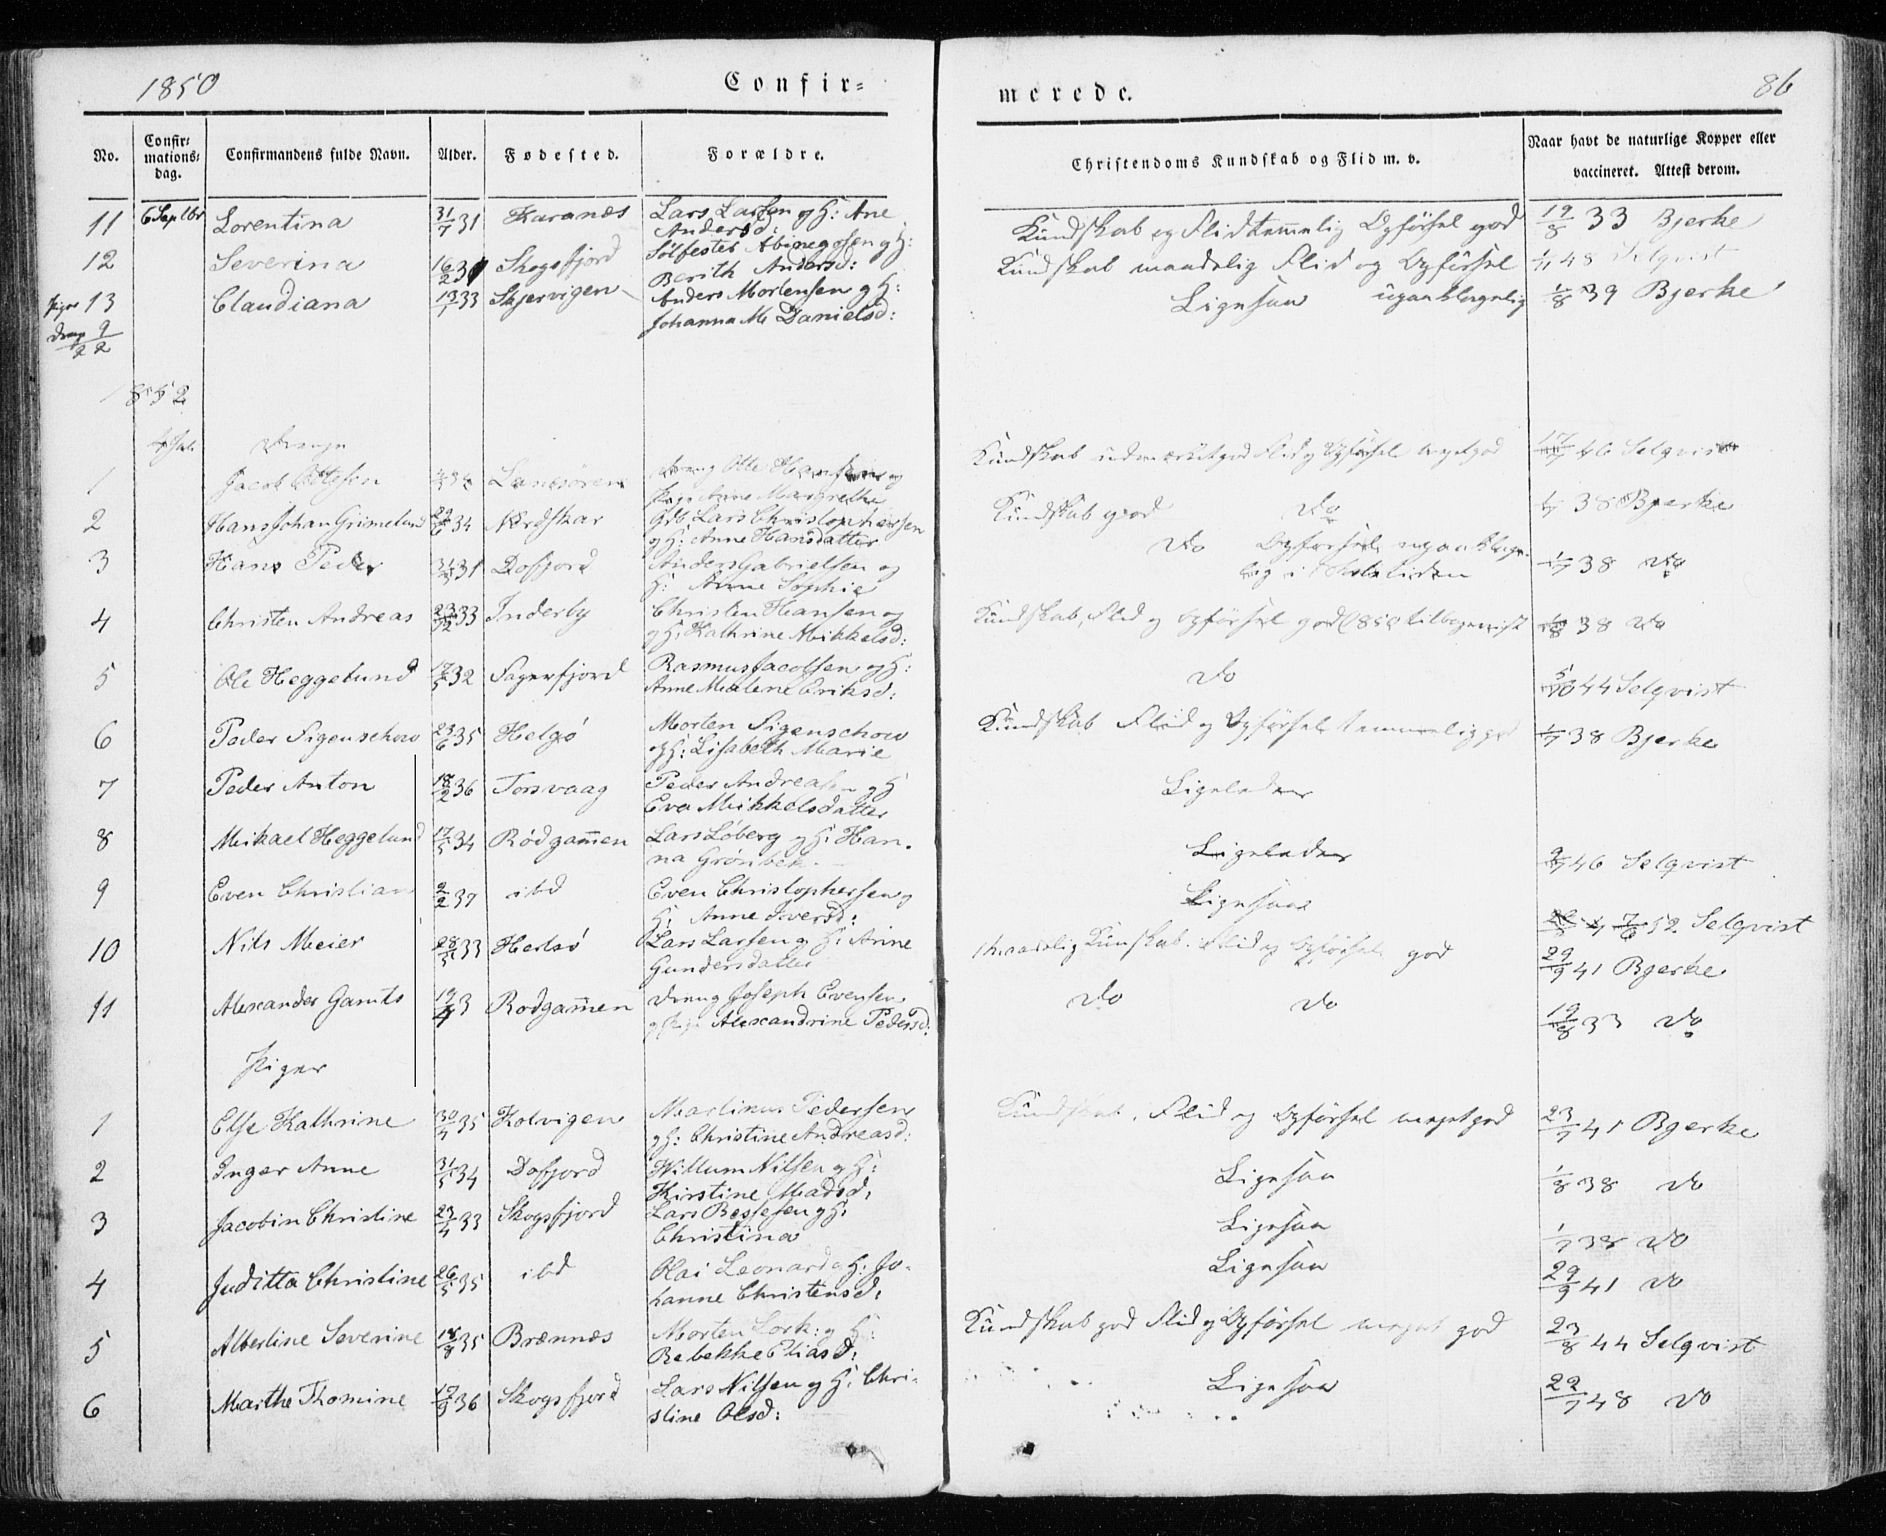 1850
Confir=
merede.
86
No.
Confir=
mations=
dag.
Confirmandens fulde Navn.
Alder.
Fødested.
Forældre.
Christendoms Kundskab og Flid m. v.
Naar havt de naturlige Kopper eller
vaccineret. Attest derom.
11 6 Septbr Lorentina 31/7 31 Karanæs Lars Larsen og H: Ane
Andersd: Kundskab og Flid temmelig Opførsel god 19/8 33 Bjerke
12 Severina 16/2 31 Skogsfjord Sølfester Abinegosen og H:
Berith Andersd: Kundskab maadelig Flid og Opførsel 48 Selqvist
upaaklagelig
Piger 13 Claudiana 13/7 33 Skjervigen Anders Mortensen og H:
Johanna M Danielsd: Ligesaa 1/8 39 Bjerke
Dreng 9
22
1852
Drenge
1 Jacob Ottesen Lanesøren Dreng Otte Hansen og
Pige Anne Margrethe Kundskab udmærket god Flid og Opførsel meget god 46 Selqvist
2 Hans Johan Grimelund 34 Nordskar Gdb. Lars Christophersen
og H: Anne Hansdatter Kundskab god Do 1/7 38 Bjerke
3 Hans Peder 31 Dafjord Anders Gabrielsen og
H: Anne Sophie Do Opførsel upaaklage-
lig i Skoletiden 1/7 38 Do
4 Christen Andreas 23/12 33 Inderby Christen Hansen og
og H: Kathrine Mikkelsd: Kundskab, Flid og Opførsel god (1850 tilbagevist 38 Do
5 Ole Heggelund 17/5 32 Sagerfjord Rasmus Jacobsen og H:
Anne Malene Eriksd: Do 5/10 44 Selqvist
6 Peder Figenschow 23/6 35 Helgø Morten Figenschow
og H: Lisabeth Marie Kundskab Flid og Opførsel temmelig god 1/7 38 Bjerke
7 Peder Anton 18/2 36 Torsvaag Peder Andreasen og H
Eva Mikkelsdatter Ligeledes
8 Mikael Heggelund 17/5 34 Rødgamen Lars Løberg og H: Han-
na Grønbek. Ligeledes 46 Selqvist
9 Even Christian 2/2 37 ibd Even Christophersen og
H: Anne Iversd: Ligesaa 7/6 52 Selqvist
10 Nils Meier 28/5 33 Helsø Lars Larsen og H: Anne
Gundersdatter Maadelig Kunskab. Flid og Opførsel god 29/9 41 Bjerke
11 Alexander Gamts Rodgamen Dreng Joseph Evensen
og Pige Alexandrine Pedersd: Do Do 19/8 33 Do
Piger
1 Else Kathrine 30/4 35 Kolvigen Martinus Pedersen
og H: Christine Andreasd: Kundskab, Flid og Opførsel meget god 23/7 41 Bjerke
2 Inger Anne 31/5 34 Dafjord Willum Nilsen og H:
Kirstine Madsd: Ligesaa 1/8 38 Do
3 Jacobin Christine 23/4 33 Skogsfjord Lars Bessesen og H:
Christina Ligesaa 1/7 38 Do
4 Juditta Christine 26/5 35 ibd Olai Leonard og H: Jo-
hanne Christensd: Ligesaa 29/9 41 Do
5 Albertine Severine 18/8 35 Brænnæs Morten Lork: og H:
Rebekke Eliasd: Kundskab god Flid og Opførsel meget god 23/8 44 Selqvist
6 Marthe Thomine 19/9 36 Skogsfjord Lars Nilsen og H: Chri-
stine Olsd: Ligesaa 22/7 48 Do